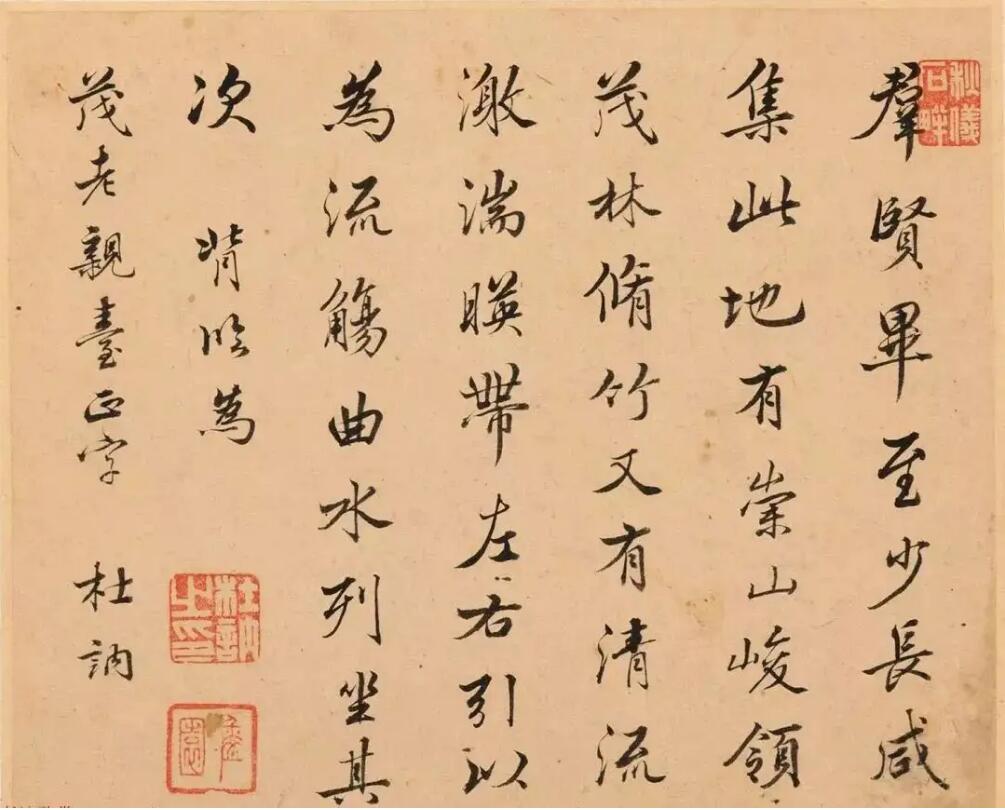 羣賢畢至少長咸
集此地有崇山峻領
茂林脩竹又有清流
激湍暎帶左右引以
為流觴曲水列坐其
次 背臨為
茂老親臺正字 杜訥
杜訥之印